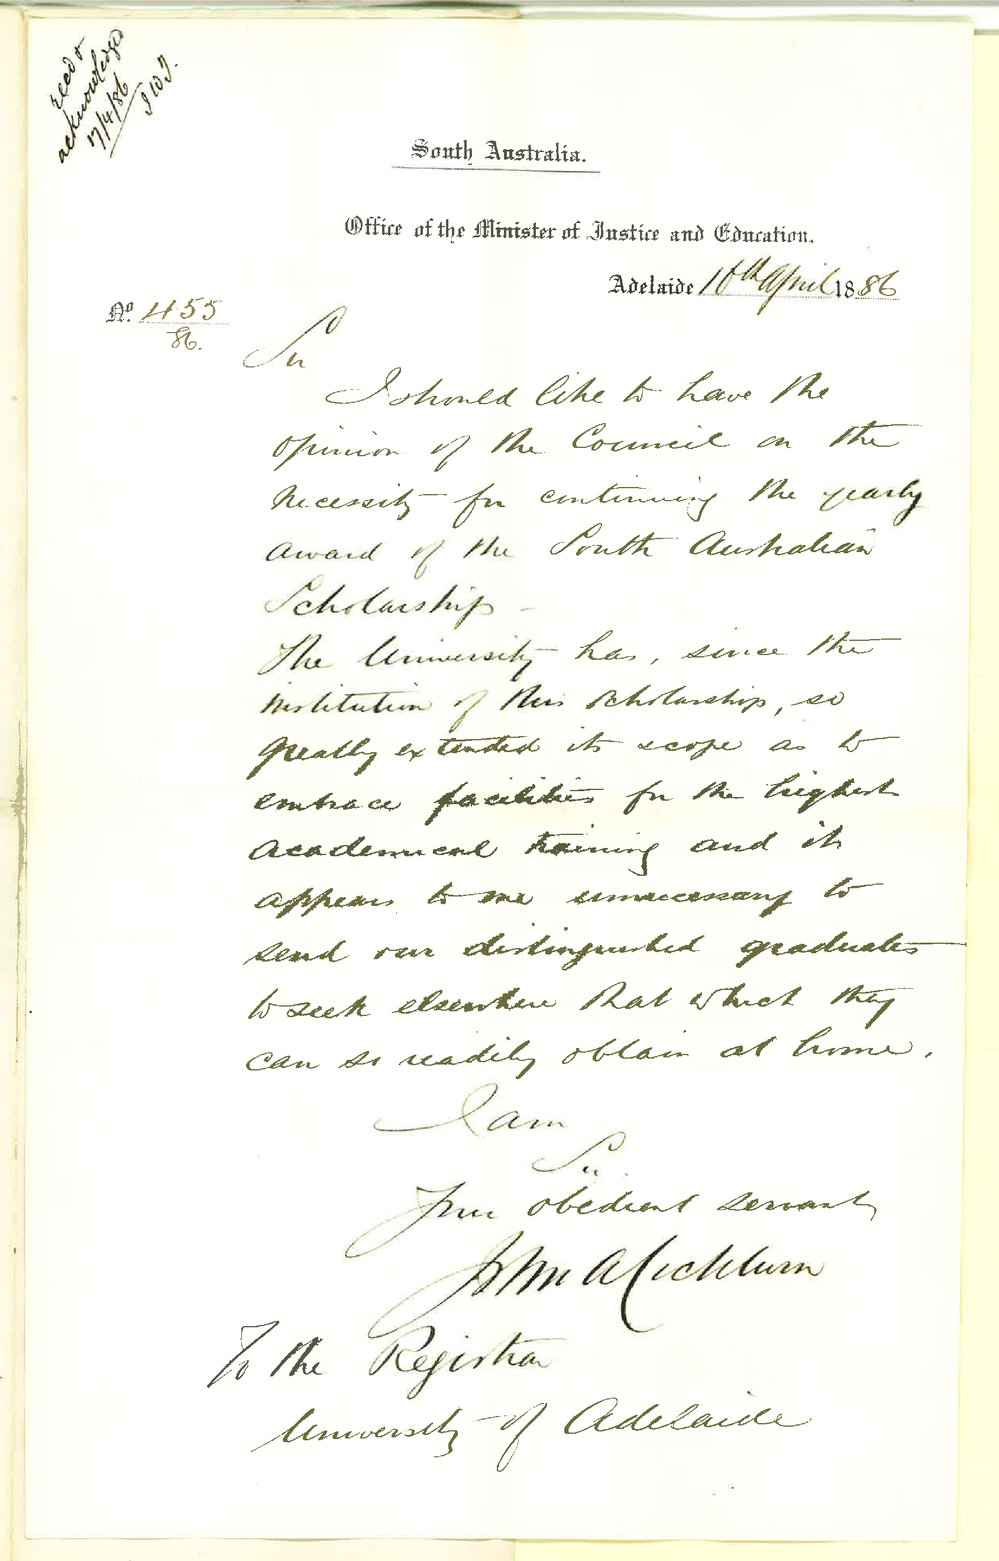 recd &
acknowledged
17/4/86
South Australia.
Office of the Minister of Justice and Education.
Adelaide 16th April 1886
No. 455
86.
Sir
I should like to have the
opinion of the Council on the
necessity for continuing the yearly
award of the South Australian
Scholarship –
The University has, since the
institution of this scholarship, so
greatly extended its scope as to
embrace facilities for the highest
academical training and it
appears to me unnecessary to
send our distinguished graduates
to seek elsewhere that which they
can so readily obtain at home.
I am
Sir
Your obedient servant
John A Cockburn
To the Registrar
University of Adelaide